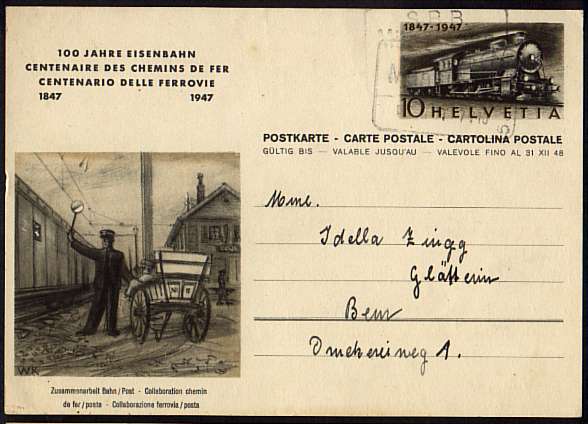 100 JAHRE EISENBAHN
CENTENAIRE DES CHEMINS DE FER
CENTENARIO DELLE FERROVIE
1847 1947
S.B.B.
1847-1947
10 HELVETIA
POSTKARTE - CARTE POSTALE - CARTOLINA POSTALE
GÜLTIG BIS — VALABLE JUSQU'AU — VALEVOLE FINO AL 31 XII 48
Mme.
Idella Zingg
Glätterin
Bern
Druckereiweg 1.
WK
Zusammenarbeit Bahn/Post - Collaboration chemin
de fer/poste - Collaborazione ferrovia/posta